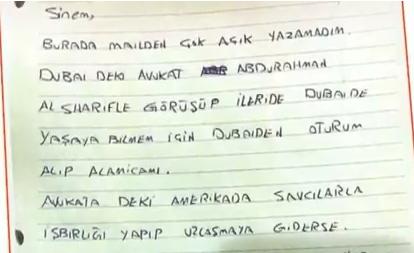 Sinem,
BURADA MAILDEN ÇOK AÇIK YAZAMADIM.
DUBAI DEKI AVUKAT ABDURAHMAN
AL SHARIFLE GÖRÜŞÜP İLERİDE DUBAIDE
YAŞAYA BİLMEM İÇİN DUBAIDEN OTURUM
ALIP ALAMICAMI.
AVUKATA DEKİ AMERIKADA SAVCILARLA
İŞBİRLİĞİ YAPIP UZLAŞMAYA GİDERSE.